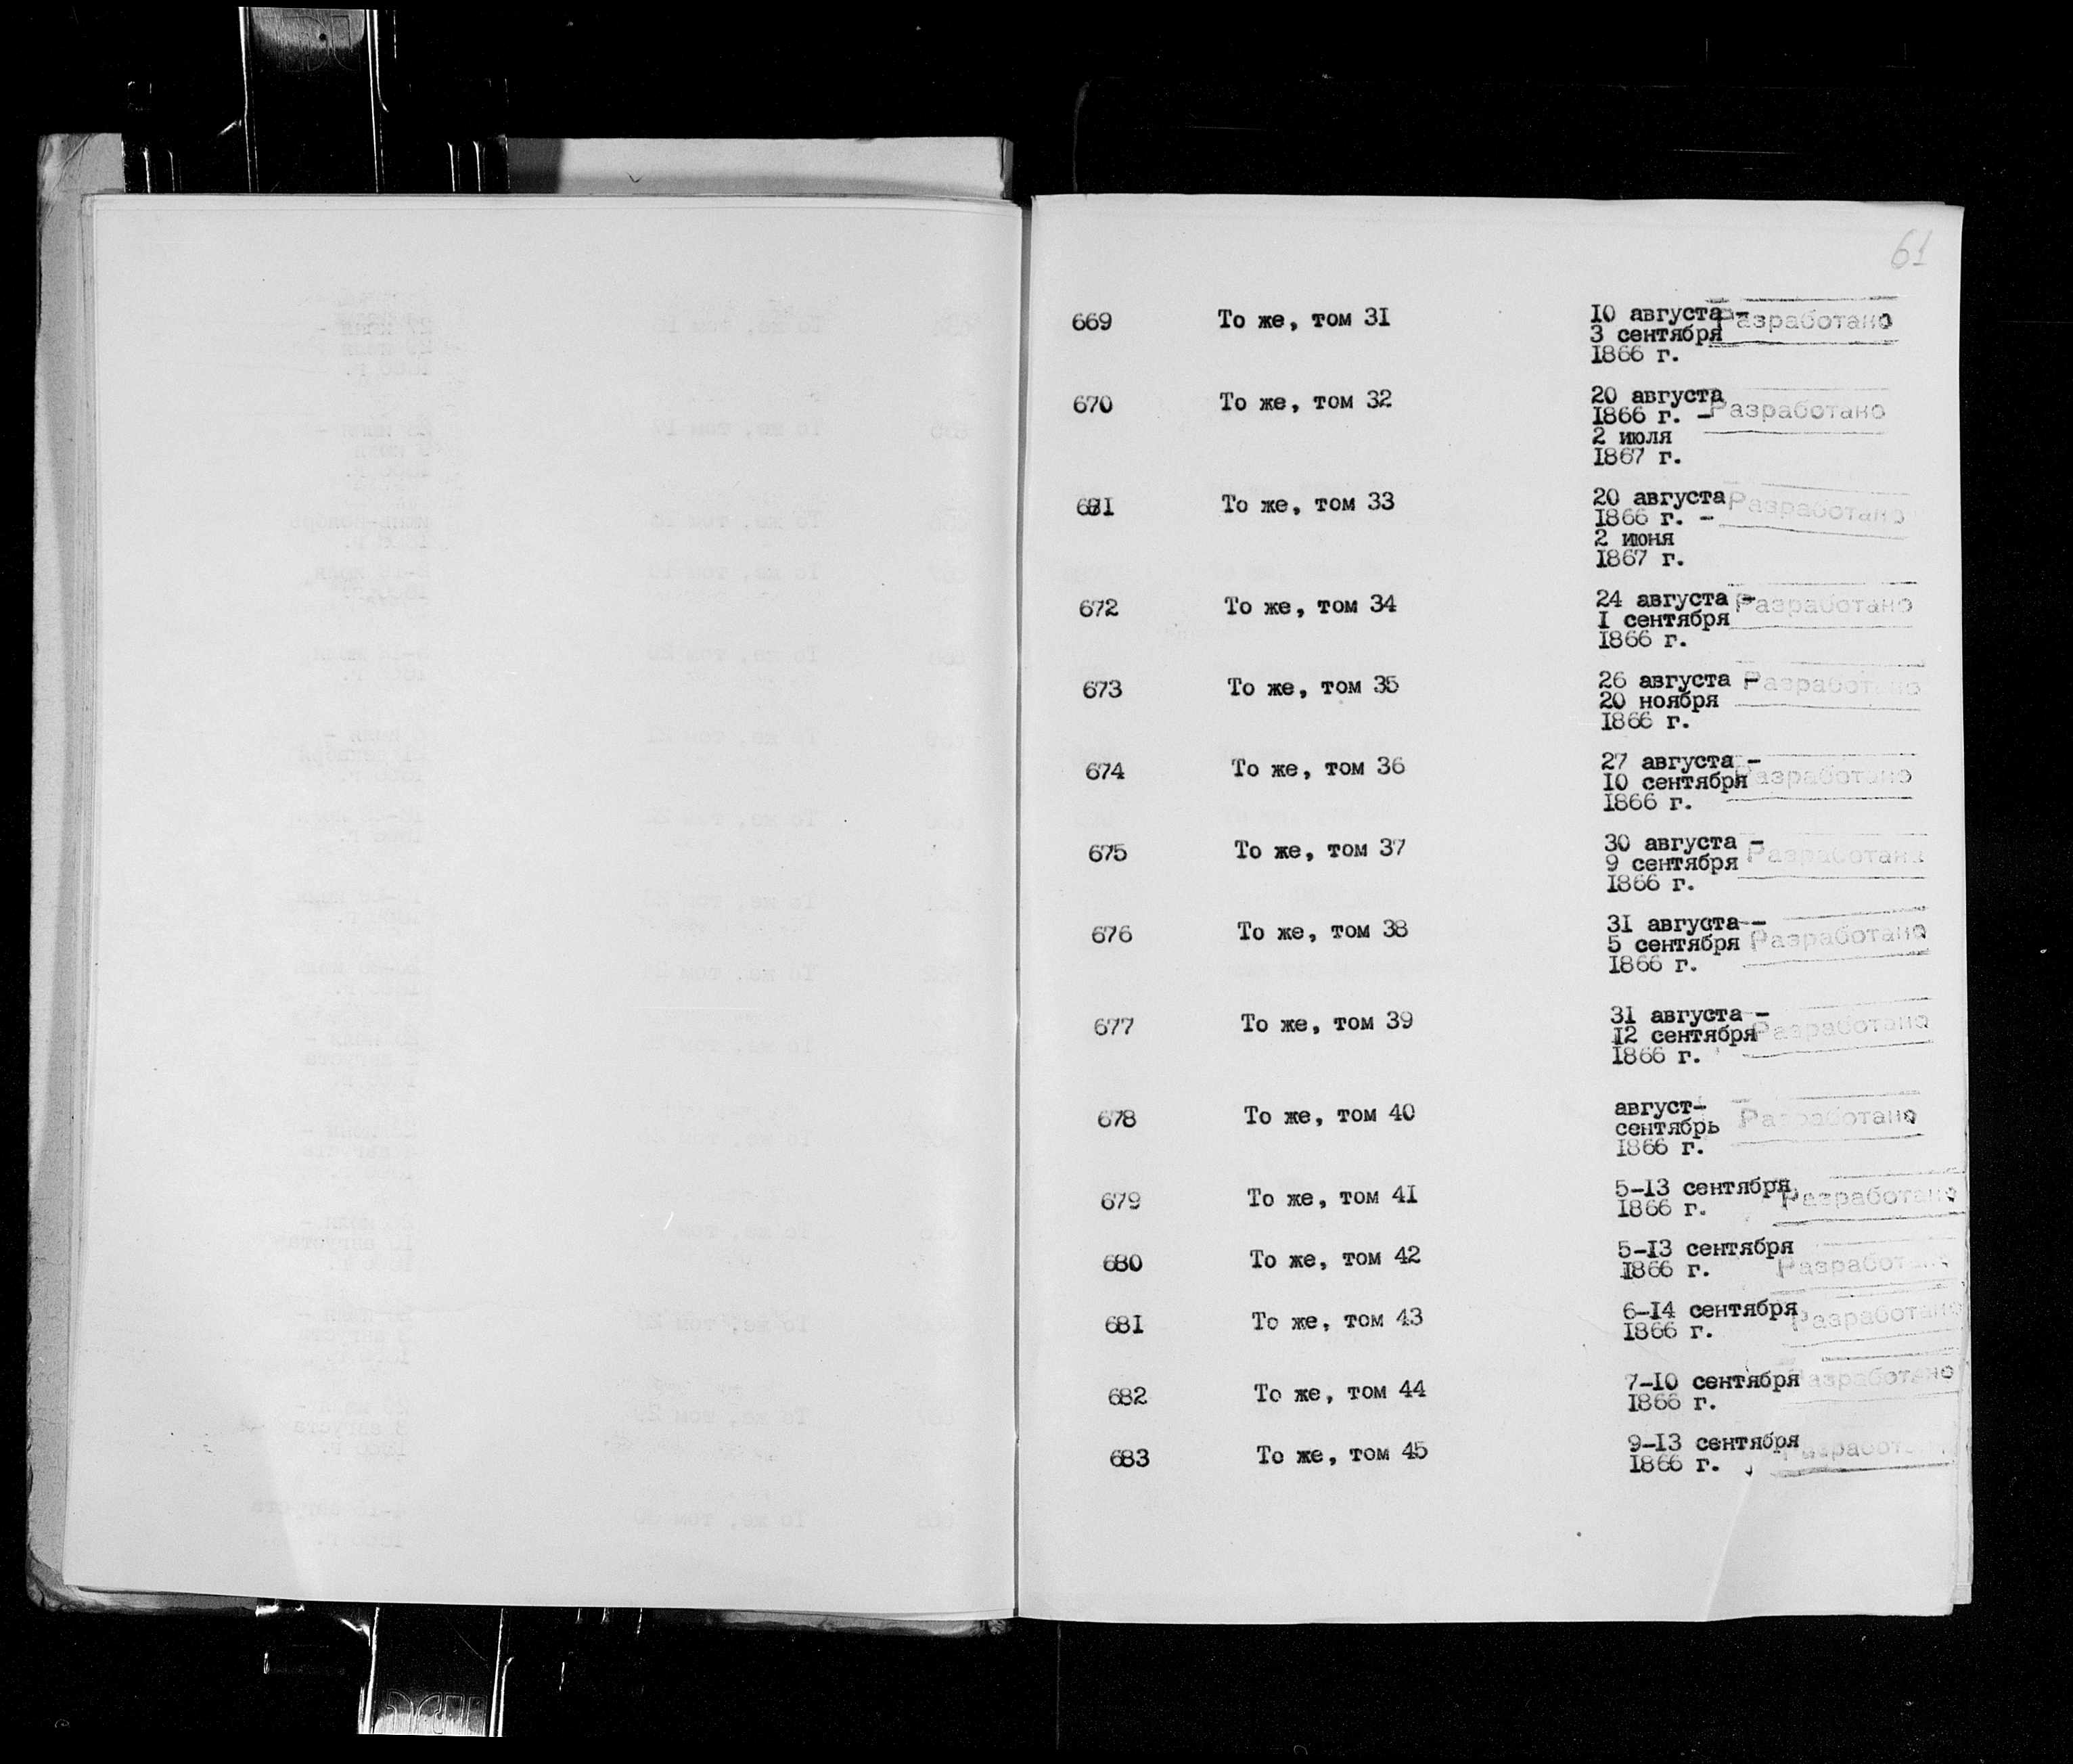 61
669 То же, том 31 10 августа - Разработано
3 сентября
1866 г.
670 То же, том 32 20 августа
1866 г. - Разработано
2 июля
1867 г.
671 То же, том 33 20 августа Разработано
1866 г. -
2 июня
1867 г.
672 То же, том 34 24 августа - Разработано
1 сентября
1866 г.
673 То же, том 35 26 августа - Разработано
20 ноября
1866 г.
674 То же, том 36 27 августа -
10 сентября Разработано
1866 г.
675 То же, том 37 30 августа -
9 сентября Разработано
1866 г.
676 То же, том 38 31 августа -
5 сентября Разработано
1866 г.
677 То же, том 39 31 августа -
12 сентября Разработано
1866 г.
678 То же, том 40 август-
сентябрь Разработано
1866 г.
679 То же, том 41 5-13 сентября
1866 г. Разработано
680 То же, том 42 5-13 сентября
1866 г. Разработано
681 То же, том 43 6-14 сентября
1866 г. Разработано
682 То же, том 44 7-10 сентября Разработано
1866 г.
683 То же, том 45 9-13 сентября Разработано
1866 г.